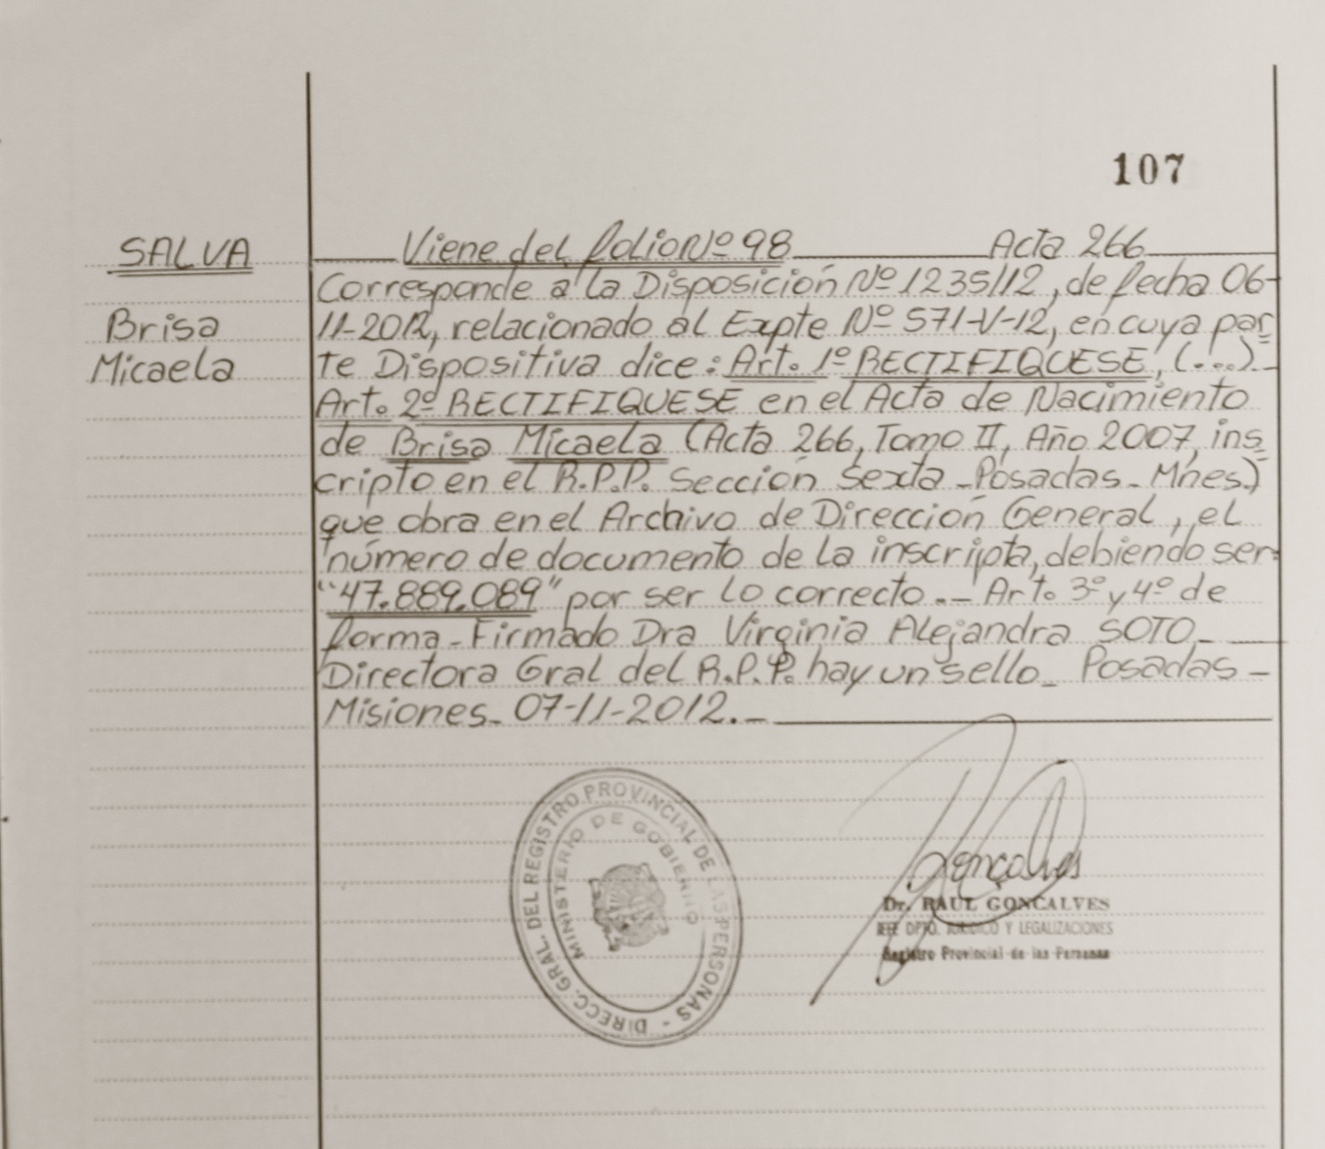 107
SALVA
Brisa
Micaela
Viene del folio Nº 98 Acta 266
Corresponde a la Disposición Nº 1235/12, de fecha 06-
11-2012, relacionado al Expte Nº 571-V-12, en cuya par
te Dispositiva dice: Art. 1º RECTIFIQUESE, (...)
Art. 2º RECTIFIQUESE en el Acta de Nacimiento
de Brisa Micaela (Acta 266, Tomo II, Año 2007, ins
cripto en el R.P.P. Sección Sexta - Posadas - Mnes.)
que obra en el Archivo de Dirección General, el
número de documento de la inscripta, debiendo ser:
"47.889.089" por ser lo correcto.- Art. 3º y 4º de
forma - Firmado Dra Virginia Alejandra SOTO -
Directora Gral del R.P.P. hay un sello - Posadas -
Misiones - 07-11-2012.-
DIRECC. GRAL. DEL REGISTRO PROVINCIAL DE LAS PERSONAS -
MINISTERIO DE GOBIERNO
Goncalves
Dr. RAUL GONCALVES
JEFE DPTO. JURIDICO Y LEGALIZACIONES
Registro Provincial de las Personas